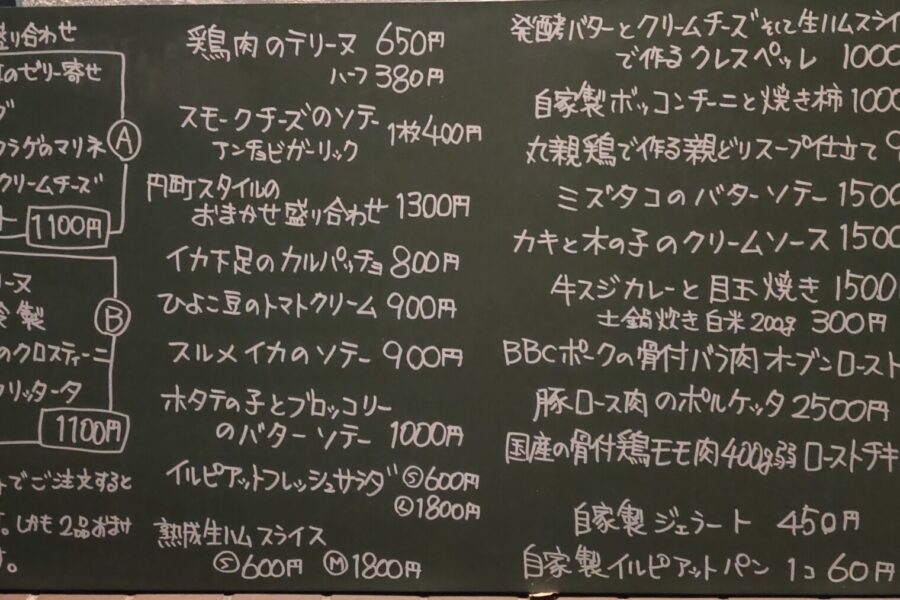 盛り合わせ
のゼリー寄せ
クラゲのマリネ
Ⓐ
クリームチーズ
1100円
ーヌ
製
Ⓑ
のクロスティーニ
フリッタータ
1100円
でご注文すると
。しかも2品おまけ
す。
鶏肉のテリーヌ 650円
ハーフ 380円
スモークチーズのソテー
アンチョビガーリック 1枚400円
円町スタイルの
おまかせ盛り合わせ 1300円
イカ下足のカルパッチョ 800円
ひよこ豆のトマトクリーム 900円
スルメイカのソテー 900円
ホタテの子とブロッコリー
のバターソテー 1000円
イルピアットフレッシュサラダ Ⓢ600円
Ⓛ1800円
熟成生ハムスライス
Ⓢ600円 Ⓜ1800円
発酵バターとクリームチーズそして生ハムスライ
で作るクレスペッレ 1000
自家製ボッコンチーニと焼き柿 1000
丸親鶏で作る親どりスープ仕立て 9
ミズタコのバターソテー 1500
カキと木の子のクリームソース 1500
牛スジカレーと目玉焼き 1500
土鍋炊き白米200g 300円
BBCポークの骨付バラ肉オーブンロースト
豚ロース肉のポルケッタ 2500円
国産の骨付鶏モモ肉400g弱 ローストチキ
自家製ジェラート 450円
自家製イルピアットパン 1コ60円